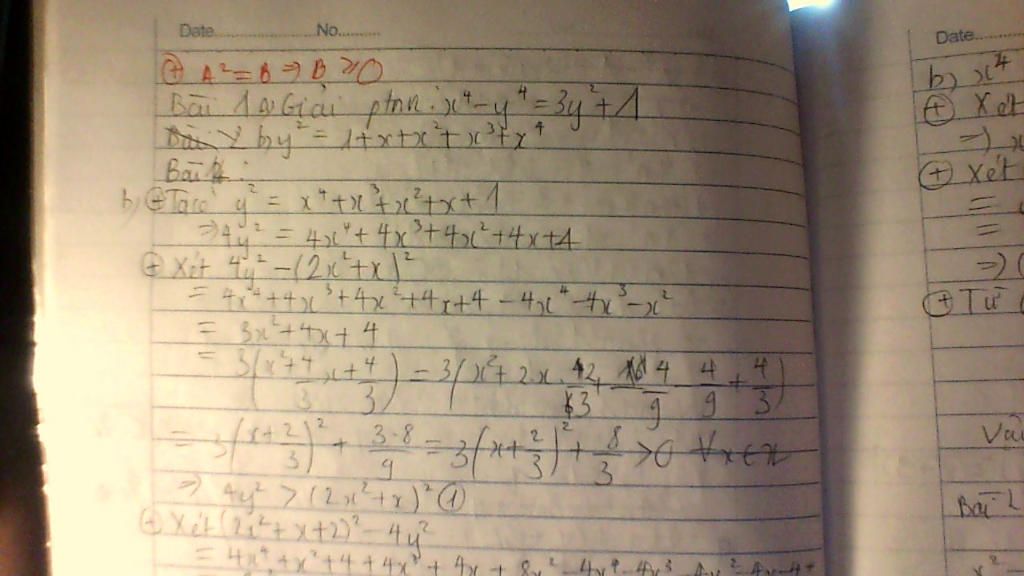 Date............ No..........
⊕ A² = B ⇒ B ⩾ 0
Bài 1 a, Giải ptnn: x⁴ - y⁴ = 3y² + 1
b, y² = 1 + x + x² + x³ + x⁴
Bài 1:
b, ⊕ Ta có y² = x⁴ + x³ + x² + x + 1
⇒ 4y² = 4x⁴ + 4x³ + 4x² + 4x + 4
⊕ Xét 4y² - (2x² + x)²
= 4x⁴ + 4x³ + 4x² + 4x + 4 - 4x⁴ - 4x³ - x²
= 3x² + 4x + 4
= 3(x² + 4/3 x + 4/3) = 3(x² + 2x . 2/3 + 4/9 - 4/9 + 4/3)
= 3(x + 2/3)² + 3·8/9 = 3(x + 2/3)² + 8/3 > 0 ∀ x ∈
⇒ 4y² > (2x² + x)² ①
⊕ Xét (2x² + x + 2)² - 4y²
= 4x⁴ + x² + 4 + 4x³ + 4x + 8x² - 4x⁴ - 4x³ - 4x² - 4x - 4
Date............
b) x⁴
⊕ Xét
⇒)
⊕ Xét
=
=
⇒) (
⊕ Từ (
Bài 2
x² -